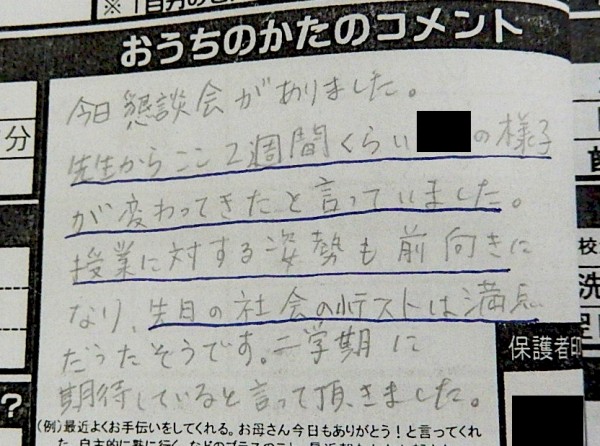 ※「自分の
おうちのかたのコメント
今日懇談会がありました。
先生からここ2週間くらい の様子
が変わってきたと言っていました。
授業に対する姿勢も前向きに
なり、先日の社会の小テストは満点
だったそうです。二学期に
期待していると言って頂きました。
分
校
洗
保護者印
?
(例)最近よくお手伝いをしてくれる。お母さん今日もありがとう!と言ってくれ
た。自主的に塾に行く、などのプラスの